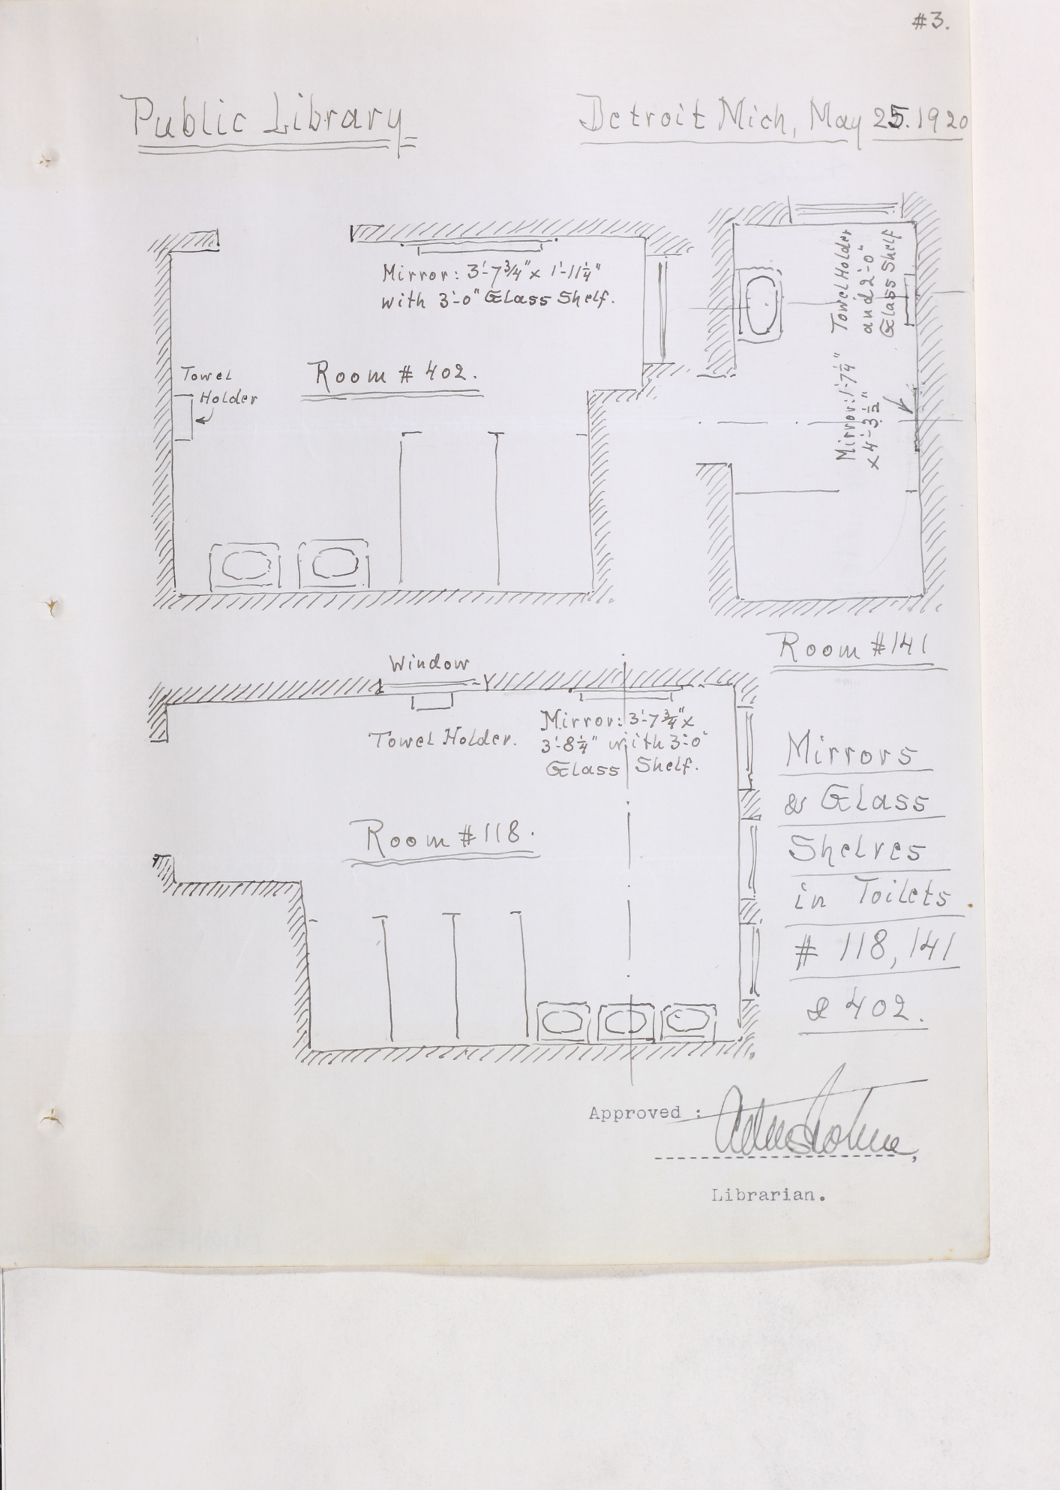 #3.
Public Library
Detroit Mich, May 25.1920
Mirror: 3'-7¾" x 1'-11¼"
with 3'-0" Glass Shelf.
Towel
Holder
Room # 402.
Towel Holder
and 2'-0"
Glass Shelf
Mirror: 1'-7¼"
x 4'-3½"
Room #141
Window
Towel Holder.
Mirror: 3'-7¾" x
3'-8¼" with 3'-0"
Glass Shelf.
Room #118.
Mirrors
& Glass
Shelves
in Toilets
# 118, 141
& 402.
Approved :
Librarian.